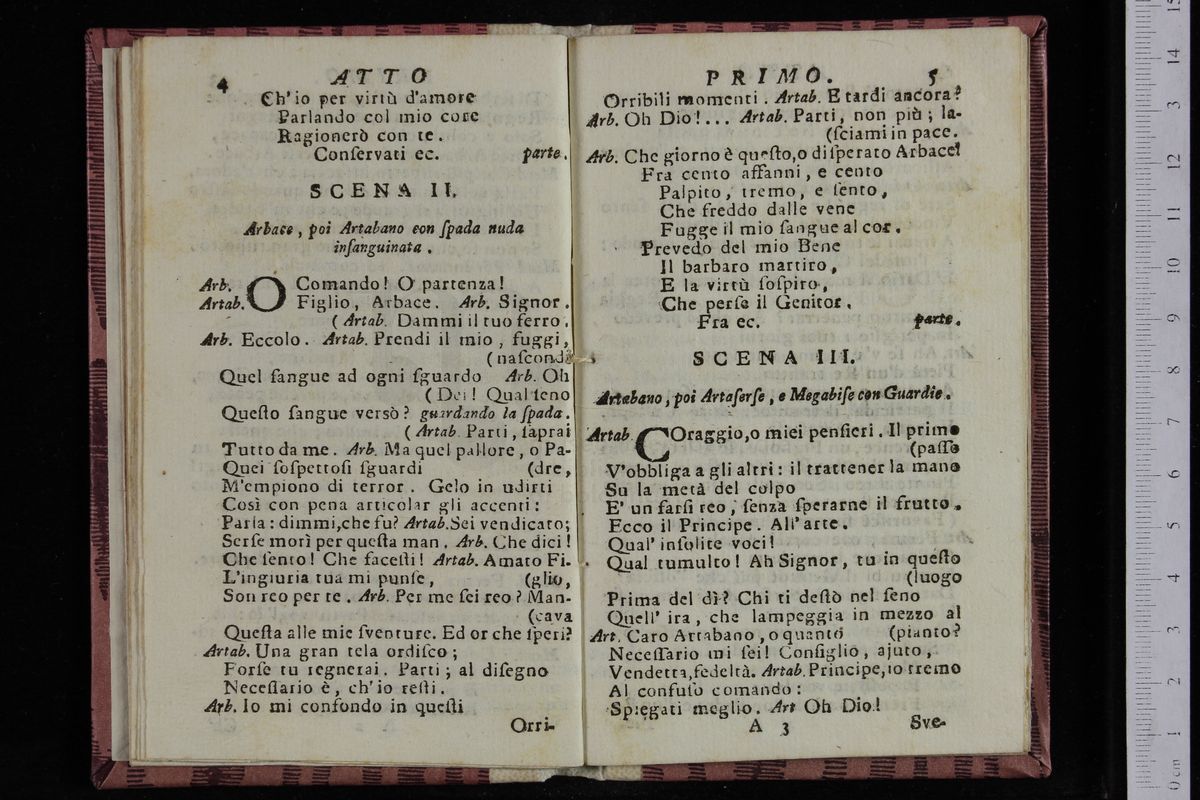 4 ATTO
Ch'io per virtù d'amore
Parlando col mio core
Ragionerò con te.
Conſervati ec. parte.
SCENA II.
Arbace, poi Artabano con ſpada nuda
inſanguinata.
Arb. O Comando! O partenza!
Artab. Figlio, Arbace. Arb. Signor.
(Artab. Dammi il tuo ferro.
Arb. Eccolo. Artab. Prendi il mio, fuggi,
(naſcondi
Quel ſangue ad ogni ſguardo Arb. Oh
(Dei! Qual ſeno
Queſto ſangue versò? guardando la ſpada.
(Artab. Parti, ſaprai
Tutto da me. Arb. Ma quel pallore, o Pa-
Quei ſoſpettoſi ſguardi (dre,
M'empiono di terror. Gelo in udirti
Così con pena articolar gli accenti:
Parla: dimmi, che fu? Artab. Sei vendicato;
Serſe morì per queſta man. Arb. Che dici!
Che ſento! Che faceſti! Artab. Amato Fi-
L'ingiuria tua mi punſe, (glio,
Son reo per te. Arb. Per me ſei reo? Man-
(cava
Queſta alle mie ſventure. Ed or che ſperi?
Artab. Una gran tela ordiſco;
Forſe tu regnerai. Parti; al diſegno
Neceſſario è, ch'io reſti.
Arb. Io mi confondo in queſti
Orri-
PRIMO. 5
Orribili momenti. Artab. E tardi ancora?
Arb. Oh Dio!... Artab. Parti, non più; la-
(ſciami in pace.
Arb. Che giorno è queſto, o diſperato Arbace!
Fra cento affanni, e cento
Palpito, tremo, e ſento,
Che freddo dalle vene
Fugge il mio ſangue al cor.
Prevedo del mio Bene
Il barbaro martiro,
E la virtù ſoſpiro,
Che perſe il Genitor.
Fra ec. parte.
SCENA III.
Artabano, poi Artaſerſe, e Megabiſe con Guardie.
Artab. COraggio, o miei penſieri. Il primo
(paſſo
V'obbliga a gli altri: il trattener la mano
Su la metà del colpo
E' un farſi reo, ſenza ſperarne il frutto.
Ecco il Principe. All'arte.
Qual' inſolite voci!
Qual tumulto! Ah Signor, tu in queſto
(luogo
Prima del dì? Chi ti deſtò nel ſeno
Quell' ira, che lampeggia in mezzo al
Art. Caro Artabano, o quanto (pianto?
Neceſſario mi ſei! Conſiglio, ajuto,
Vendetta, fedeltà. Artab. Principe, io tremo
Al confuſo comando:
Spiegati meglio. Art Oh Dio!
A 3 Sve-